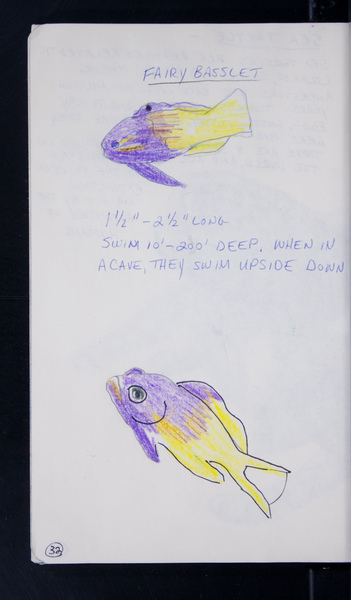 FAIRY BASSLET
1 1/2" - 2 1/2" LONG
SWIM 10' - 200' DEEP. WHEN IN
A CAVE, THEY SWIM UPSIDE DOWN
32